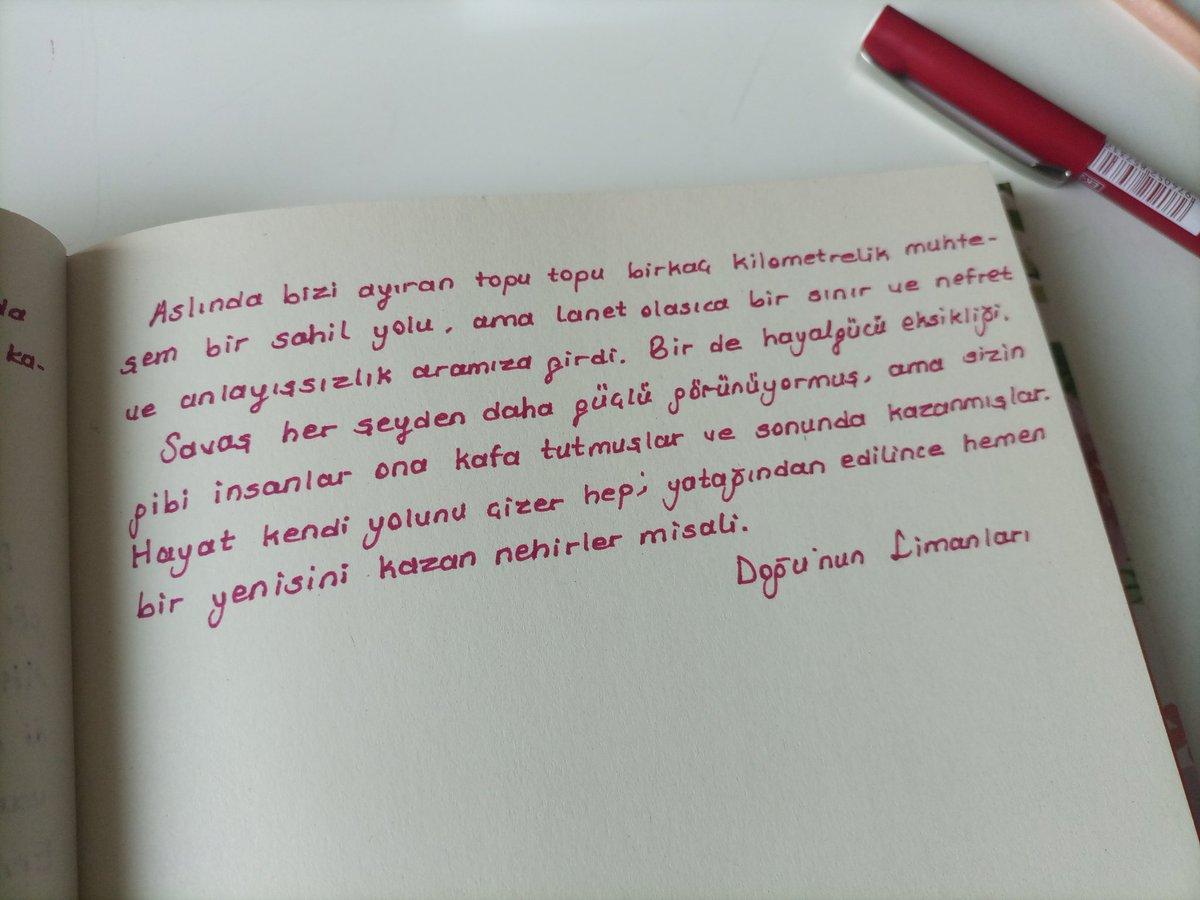 da
ka-
Aslında bizi ayıran topu topu birkaç kilometrelik muhte-
şem bir sahil yolu, ama lanet olasıca bir sınır ve nefret
ve anlayışsızlık aramıza girdi. Bir de hayalgücü eksikliği.
Savaş her şeyden daha güçlü görünüyormuş, ama sizin
gibi insanlar ona kafa tutmuşlar ve sonunda kazanmışlar.
Hayat kendi yolunu çizer hep; yatağından edilince hemen
bir yenisini kazan nehirler misali.
Doğu'nun Limanları